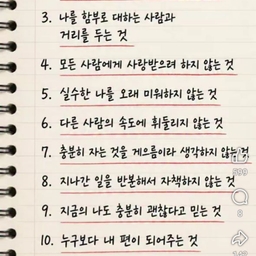 3. 나를 함부로 대하는 사람과
거리를 두는 것
4. 모든 사람에게 사랑받으려 하지 않는 것
5. 실수한 나를 오래 미워하지 않는 것
6. 다른 사람의 속도에 휘둘리지 않는 것
7. 충분히 자는 것을 게으름이라 생각하지 않는 것
599
8. 지나간 일을 반복해서 자책하지 않는 것
8
9. 지금의 나도 충분히 괜찮다고 믿는 것
10. 누구보다 내 편이 되어주는 것